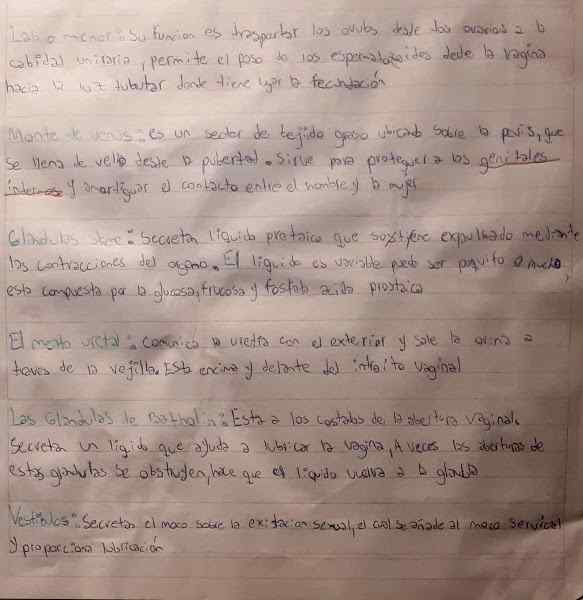 Labio menor: Su funcion es trasportar los ovulos desde los ovarios a la
cabidal unitaria, permite el paso de los espermatozoides dede la vagina
hacia la luz tubutar donde tiene lugar la fecundación
Monte de venus: es un sector de tejido graso ubicado sobre la pevis, que
se llena de vello desde la pubertad. Sirve para proteguer a los genitales
internos y amortiguar el contacto entre el hombre y la mujer
Glandulas skene: Secretan liquido protaico que sostiene expulhado mediante
las contracciones del orgasmo. El liquido es variable puede ser poquito o mucho,
esta compuesta por la glucosa, frucosa y fosfata acida prostaica
El meato uretal: comunica la uretra con el exterior y sale la orina a
traves de la vejilla. Esta encima y delante del introito vaginal
Las Glandulas de Batholin: Esta a los costados de la abertura vaginal.
Secreta un liqido que ayuda a lubricar la vagina, A veces las aberturas de
estas glandulas se obstruyen, hace que el liquido vuelva a la glandula
Vestibulos: Secretas el moco sobre la exitacion sexual, el cual se añade al moco servical
y proporciona lubricación